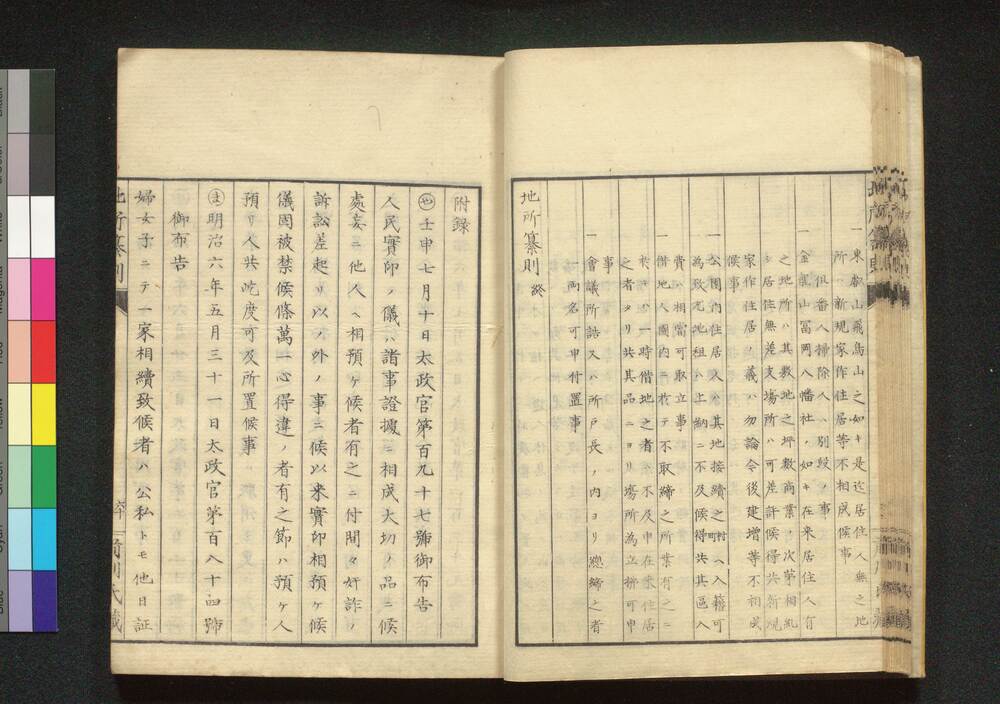 一東叡山飛鳥山之如キ是迄居住人無之地
所ハ新規家作住居等不相成候事
但番人掃除人ハ別段ノ事
一金龍山冨岡八幡社ノ如キ在来居住人有
之地所ハ其数地之坪数商業等次第相糺
シ居住無差支場所ハ可差許候得共新規
家作住居ノ義ハ勿論令後建増等不相成
候事
一公園内住居人ハ其地接續ノ町村ヘ入籍可
為致尤地租ハ上納ニ不及候得共其區入
費ハ相當可取立事
一借地人園内ニ於テ不取締之所業有之ニ
於テハ一時借地之者ハ不及申在来住居
之者タリ共其品ニヨリ場所為立拂可申
事
一會議所詰又ハ所戸長ノ内ヨリ總締之者
一両名可申付置事
地所纂則 終
附録
㋳壬申七月十日太政官第百九十七號御布告
人民實印ノ儀ハ諸事證據ニ相成大切ノ品ニ候
處妄ニ他人ヘ相預ケ候者有之ニ付間々奸詐ノ
訴訟差起リ以ノ外ノ事ニ候以来實印相預ケ候
儀固被禁候條萬一心得違ノ者有之節ハ預ケ人
預リ人共屹度可及所置候事
㋮明治六年五月三十一日太政官第百八十四號
御布告
婦女子ニテ一家相續致候者ハ公私トモ他日証
地所纂則